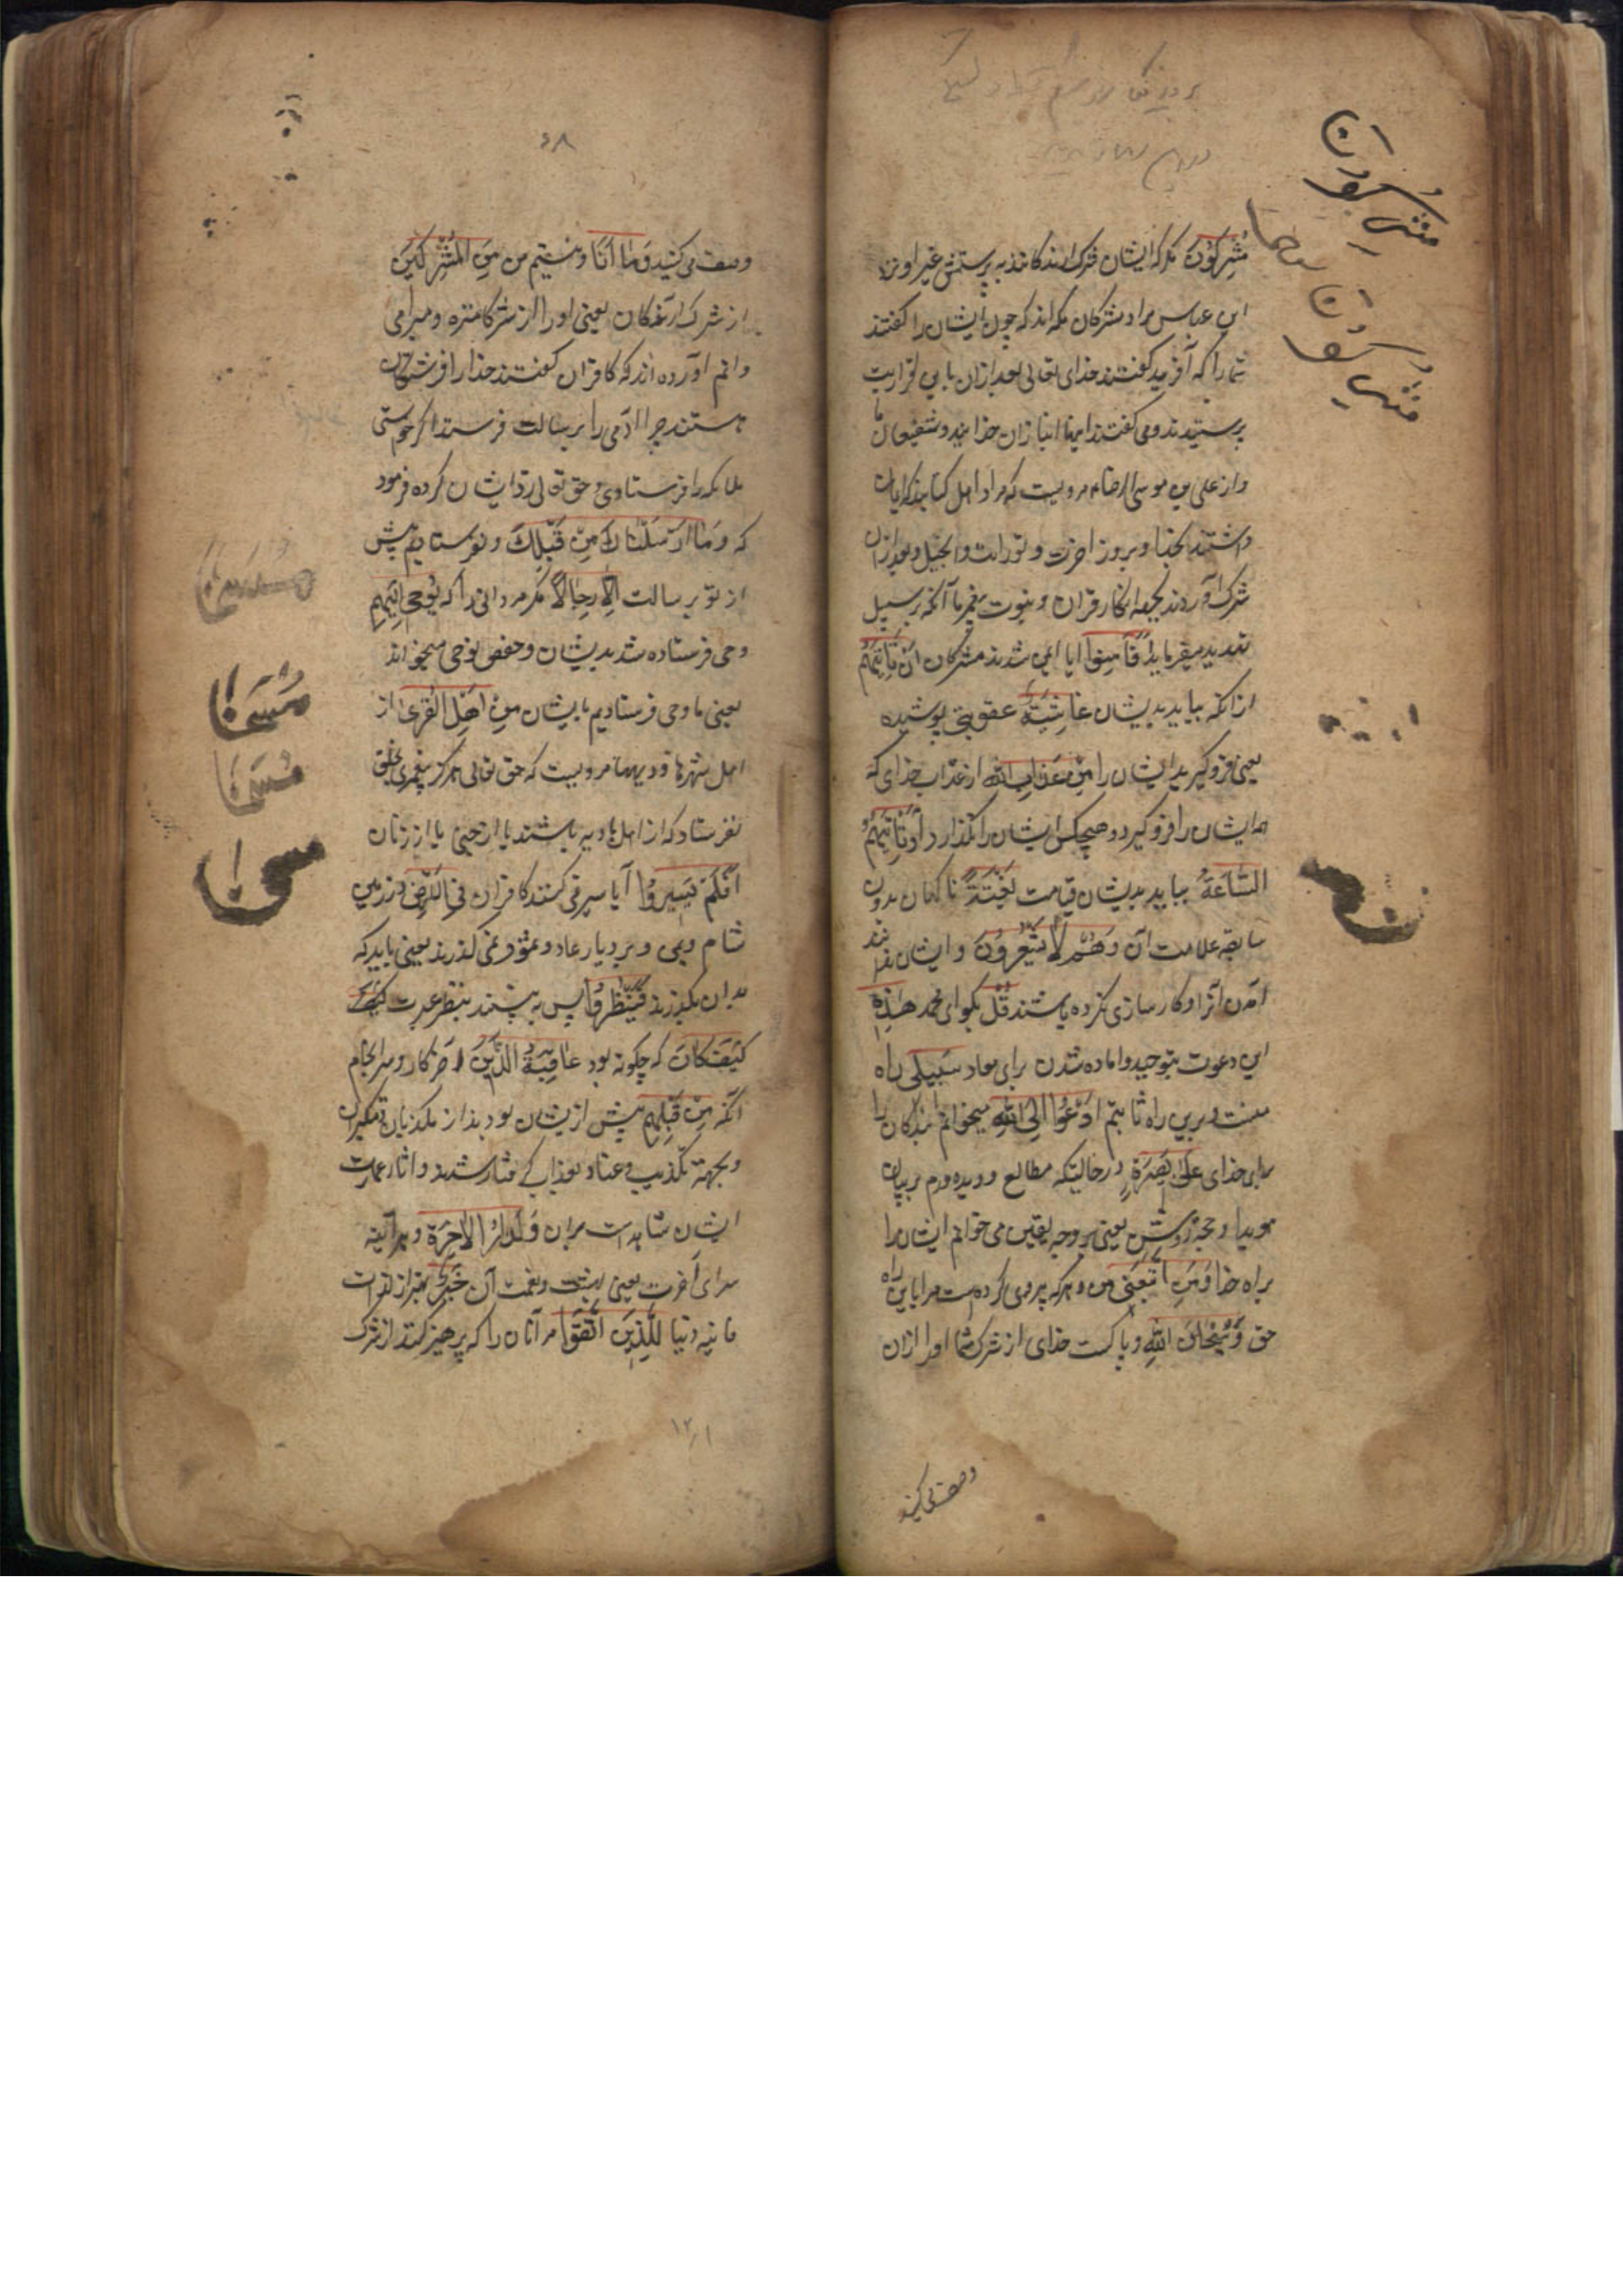 مُشْرِکُوْنَ مگر که ایشان شرک ارندکانند به پرستش غیر او نزد
ابن عباس مراد مشرکان مکه اند که چون ایشان را گفتند
شما را که آفرید گفتند خدای تعالی بعد ازان باین اقرار بت
پرستیدند و می گفتند اینها انبازان خدایند و شفیعان ما
و از علی بن موسی الرضا مرویست که مراد اهل کتابند که ایمان
داشتند بخدا و بروز اخرت و تورات و انجیل و بعد ازان
شرک آوردند بجهة انکار قران و نبوت پیغمبر ما آنکه بر سبیل
تهدید میفرماید اَفَاَمِنُوْا ایا ایمن شدند مشرکان اَنْ تَاتِیَهُمْ
ازانکه بیاید بدیشان غَاشِیَةٌ عقوبتی پوشیده
یعنی فرو گیرید ایشان را مِنْ عَذَابِ اللهِ از عذاب خدای که
همه ایشان را فرو گیرد و هیچکس ایشان را نگذارد اَوْ تَاتِیَهُمُ
السَّاعَةُ بیاید بدیشان قیامت بَغْتَةً ناگهان بدون
سابقه علامت آن وَهُمْ لَا یَشْعُرُوْنَ و ایشان ندانند
آمدن آنرا و کار سازی نکرده باشند قُلْ بگو ای محمد هٰذِهٖ
این دعوت بتوحید و اماده شدن برای معاد سَبِیْلِیْ راه
منست و برین راه ثابتم اَدْعُوْا اِلَی اللهِ میخوانم بندکان را
برای خدای عَلٰی بَصِیْرَةٍ در حالتیکه مطلع و دیده ورم بر بیان
هویدا و حجة روشن یعنی بر وجه یقین می خوانم ایشان را
براه خدا وَمَنِ اتَّبَعَنِیْ من و هر که پیروی کرده است مرا باین راه
حق وَسُبْحَانَ اللهِ و پاکست خدای از شرک شما او را ازان
وصف می کنید
مشرکون
مشرکون
٤٨
وصف می کنید وَمَا اَنَا و نیستم من مِنَ الْمُشْرِکِیْنَ
از شرک ارندکان یعنی او را از شرکا منزه و مبرا می
دانم اورده اند که کافران گفتند خدا را فرشتکان
هستند چرا ادمی را برسالت فرستد اکر خواستی
ملائکه را فرستادی و حق تعالی رد ایشان کرده فرمود
که وَمَا اَرْسَلْنَا مِنْ قَبْلِكَ و نفرستادیم پیش
از تو برسالت اِلَّا رِجَالًا مکر مردانی را که یُوْحٰی اِلَیْهِمْ
وحی فرستاده شد بدیشان و حفص نوحی میخواند
یعنی ما وحی فرستادیم بایشان مِنْ اَهْلِ الْقُرٰی از
اهل شهرها و دیهها مرویست که حق تعالی هرکز پیغمبری بخلق
نفرستاد که از اهل بادیه باشند یا از جن یا از زنان
اَفَلَمْ یَسِیْرُوْا آیا سیر نمی کنند کافران فِی الْاَرْضِ در زمین
شام و یمن و بر دیار عاد و ثمود نمی گذرند یعنی باید که
بدان بگذرند فَیَنْظُرُوْا پس به بینند بنظر عبرت کَیْفَ
کَیْفَ کَانَ که چگونه بود عَاقِبَةُ الَّذِیْنَ آخر کار و سرانجام
آنکه مِنْ قَبْلِهِمْ پیش از یشان بودند از مکذبان و متکبران
و بجهة تکذیب و عناد بعذاب گرفتار شدند و اثار عمارت
ایشان شاهد است بران وَلَدَارُ الْاٰخِرَةِ و هر آینه
سرای آخرت یعنی بهشت و نعمت آن خَیْرٌ بهتر از لذات
فانیه دنیا لِلَّذِیْنَ اتَّقَوْا مر آنان را که پرهیز کنند از شرک
١٢١